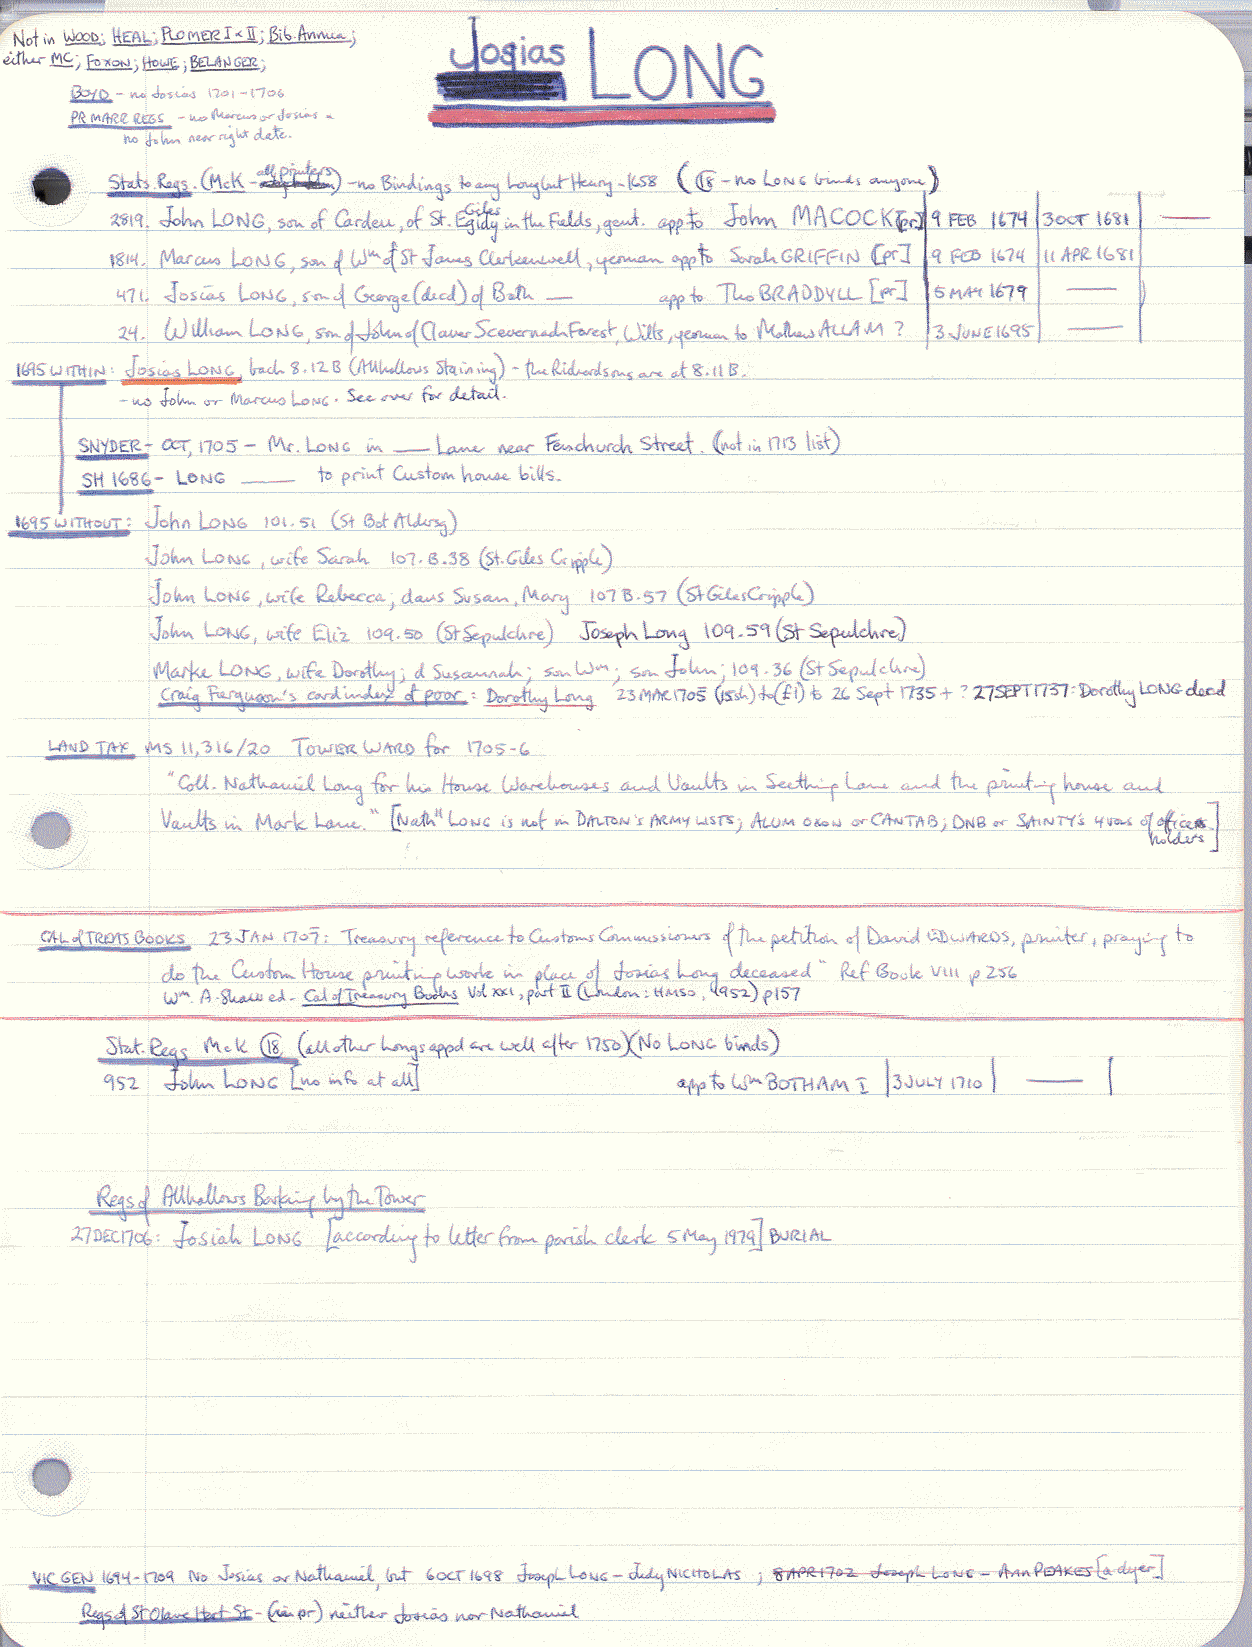 Not in WOOD; HEAL; PLOMER I & II; Bib. Annua;
either MC; FOXON; HOWE; BELANGER;
Josias LONG
BOYD - no Josias 1701-1706
PR MARR REGS - no Marcus or Josias &
no John near right date.
all printers
Stats. Regs. (McK - ) - no Bindings to any Long but Henry - 1658 (18 - no LONG binds anyone)
Giles
2819. John LONG, son of Carden, of St. Egidy in the Fields, gent. app to John MACOCK [pr] 9 FEB 1674 3 OCT 1681 —
1814. Marcus LONG, son of Wm of St James Clerkenwell, yeoman app to Sarah GRIFFIN [pr] 9 FEB 1674 11 APR 1681
471. Josias LONG, son of George (decd) of Bath — app to Tho BRADDYLL [pr] 5 MAY 1679 —
24. William LONG, son of John of Claver Scevernach Forest, Wilts, yeoman to Mathew ALLAM ? 3 JUNE 1695 —
1695 WITHIN: Josias LONG, bach 8.12B (Allhallows Staining) - the Richardsons are at 8.11B.
- no John or Marcus LONG. See over for detail.
SNYDER - OCT, 1705 - Mr. LONG in — Lane near Fenchurch Street. (not in 1713 list)
SH 1686 - LONG — to print Custom house bills.
1695 WITHOUT: John LONG 101.51 (St Bot Aldersg)
John LONG, wife Sarah 107.B.38 (St. Giles Cripple)
John LONG, wife Rebecca; daus Susan, Mary 107B.57 (St Giles Cripple)
John LONG, wife Eliz 109.50 (St Sepulchre) Joseph Long 109.59 (St Sepulchre)
Marke LONG, wife Dorothy; d Susannah; son Wm; son John; 109.36 (St Sepulchre)
Craig Ferguson's card index of poor: Dorothy Long 23 MAR 1705 (15sh) to (£1) to 26 Sept 1735 + ? 27 SEPT 1737: Dorothy LONG dead
LAND TAX MS 11,316/20 TOWER WARD for 1705-6
"Coll. Nathaniel Long for his House Warehouses and Vaults in Seething Lane and the printing house and
Vaults in Mark Lane." [Nathll LONG is not in DALTON'S ARMY LISTS; ALUM OXON or CANTAB; DNB or SAINTY'S 4 vols of office
holders]
CAL of TREAS BOOKS 23 JAN 1707: Treasury reference to Customs Commissioners of the petition of David EDWARDS, printer, praying to
do the Custom House printing work in place of Josias Long deceased" Ref Book VIII p 256
Wm. A. Shaw ed - Cal of Treasury Books Vol XXI, part II (London: HMSO, 1952) p157
Stat. Regs McK 18 (all other Longs appd are well after 1750) (No LONG binds)
952 John LONG [no info at all] app to Wm BOTHAM I 3 JULY 1710 —
Regs of Allhallows Barking by the Tower
27 DEC 1706: Josiah LONG [according to letter from parish clerk 5 May 1979] BURIAL
VIC GEN 1694-1709 No Josias or Nathaniel, but 6 OCT 1698 Joseph LONG - Judy NICHOLAS ; 8 APR 1702 Joseph LONG - Ann PEAKES [a dyer]
Regs of St Olave Hart St - (in pr) neither Josias nor Nathaniel